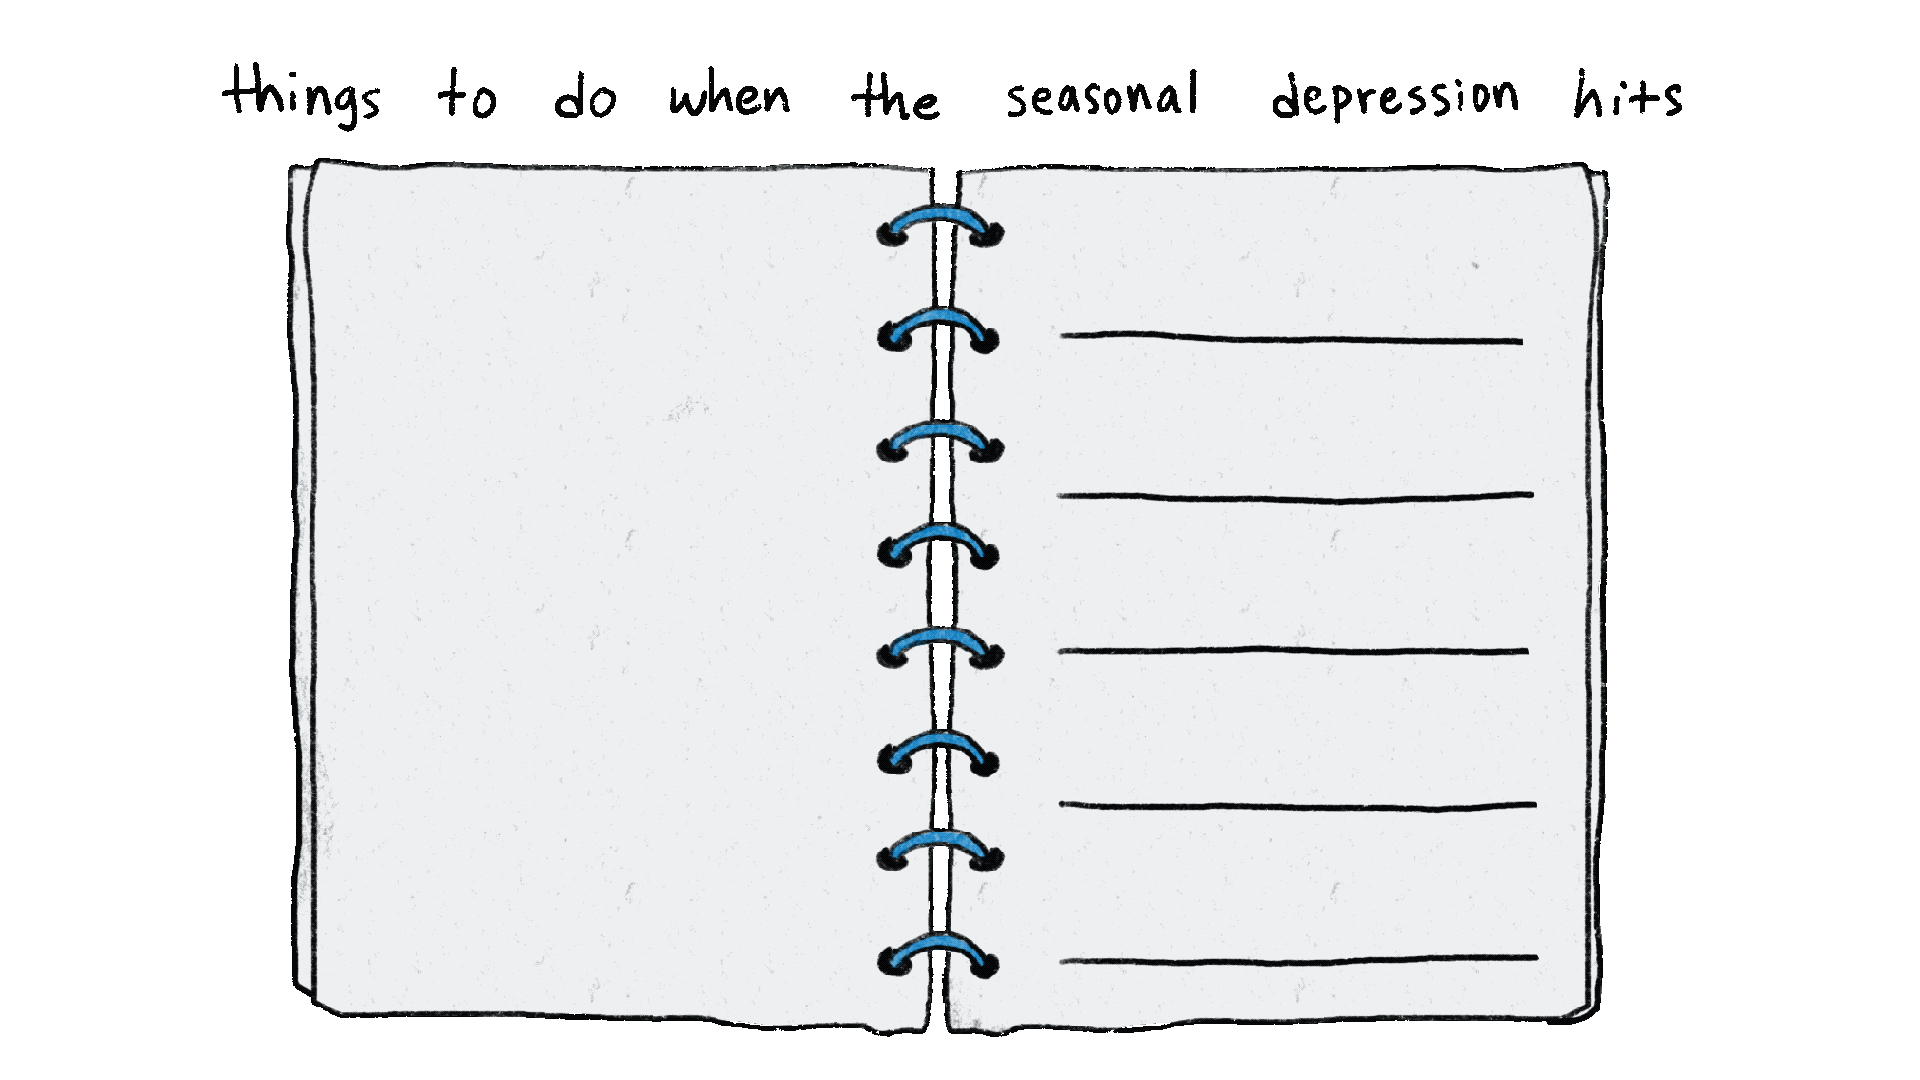 things to do when the seasonal depression hits